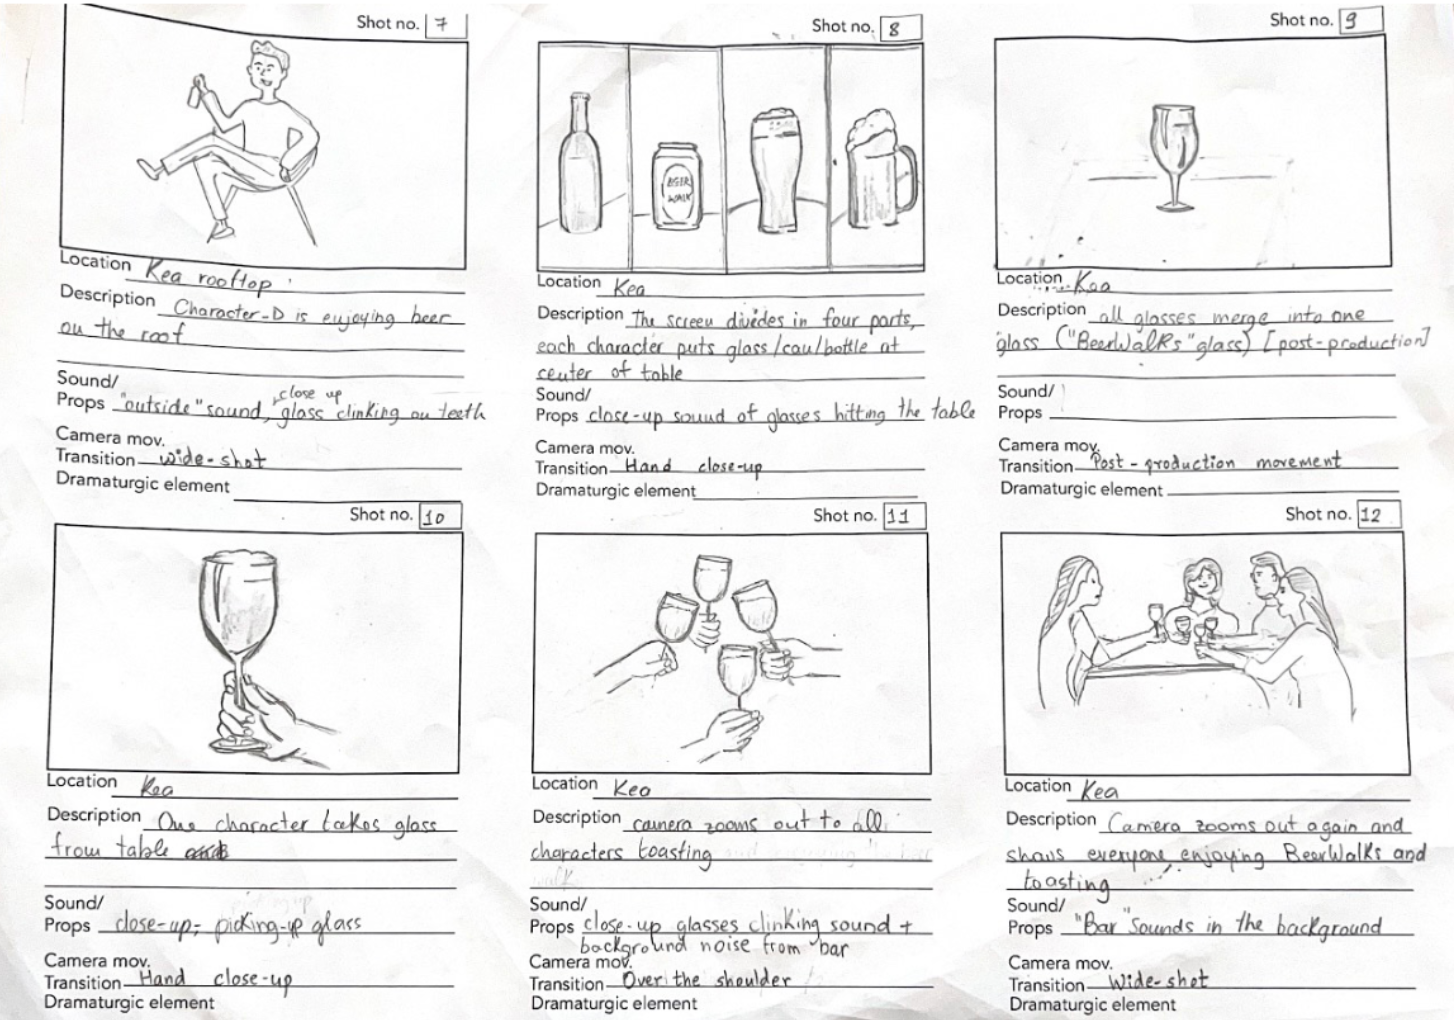 Shot no. 7
Location Kea rooftop
Description Character-D is enjoying beer
on the roof
Sound/ close up
Props "outside" sound, glass clinking on teeth
Camera mov.
Transition wide-shot
Dramaturgic element
Shot no. 8
BEER
WALK
Location Kea
Description The screen divides in four parts,
each character puts glass/can/bottle at
center of table
Sound/
Props close-up sound of glasses hitting the table
Camera mov.
Transition Hand close-up
Dramaturgic element
Shot no. 9
Location Kea
Description all glasses merge into one
glass ("BeerWalks" glass) [post-production]
Sound/
Props
Camera mov.
Transition Post-production movement
Dramaturgic element
Shot no. 10
Location Kea
Description One character takes glass
from table
Sound/
Props close-up; picking-up glass
Camera mov.
Transition Hand close-up
Dramaturgic element
Shot no. 11
Location Kea
Description camera zooms out to all
characters toasting
Sound/
Props close-up glasses clinking sound +
background noise from bar
Camera mov.
Transition Over the shoulder
Dramaturgic element
Shot no. 12
Location Kea
Description Camera zooms out again and
shows everyone enjoying BeerWalks and
toasting
Sound/
Props "Bar" Sounds in the background
Camera mov.
Transition Wide-shot
Dramaturgic element